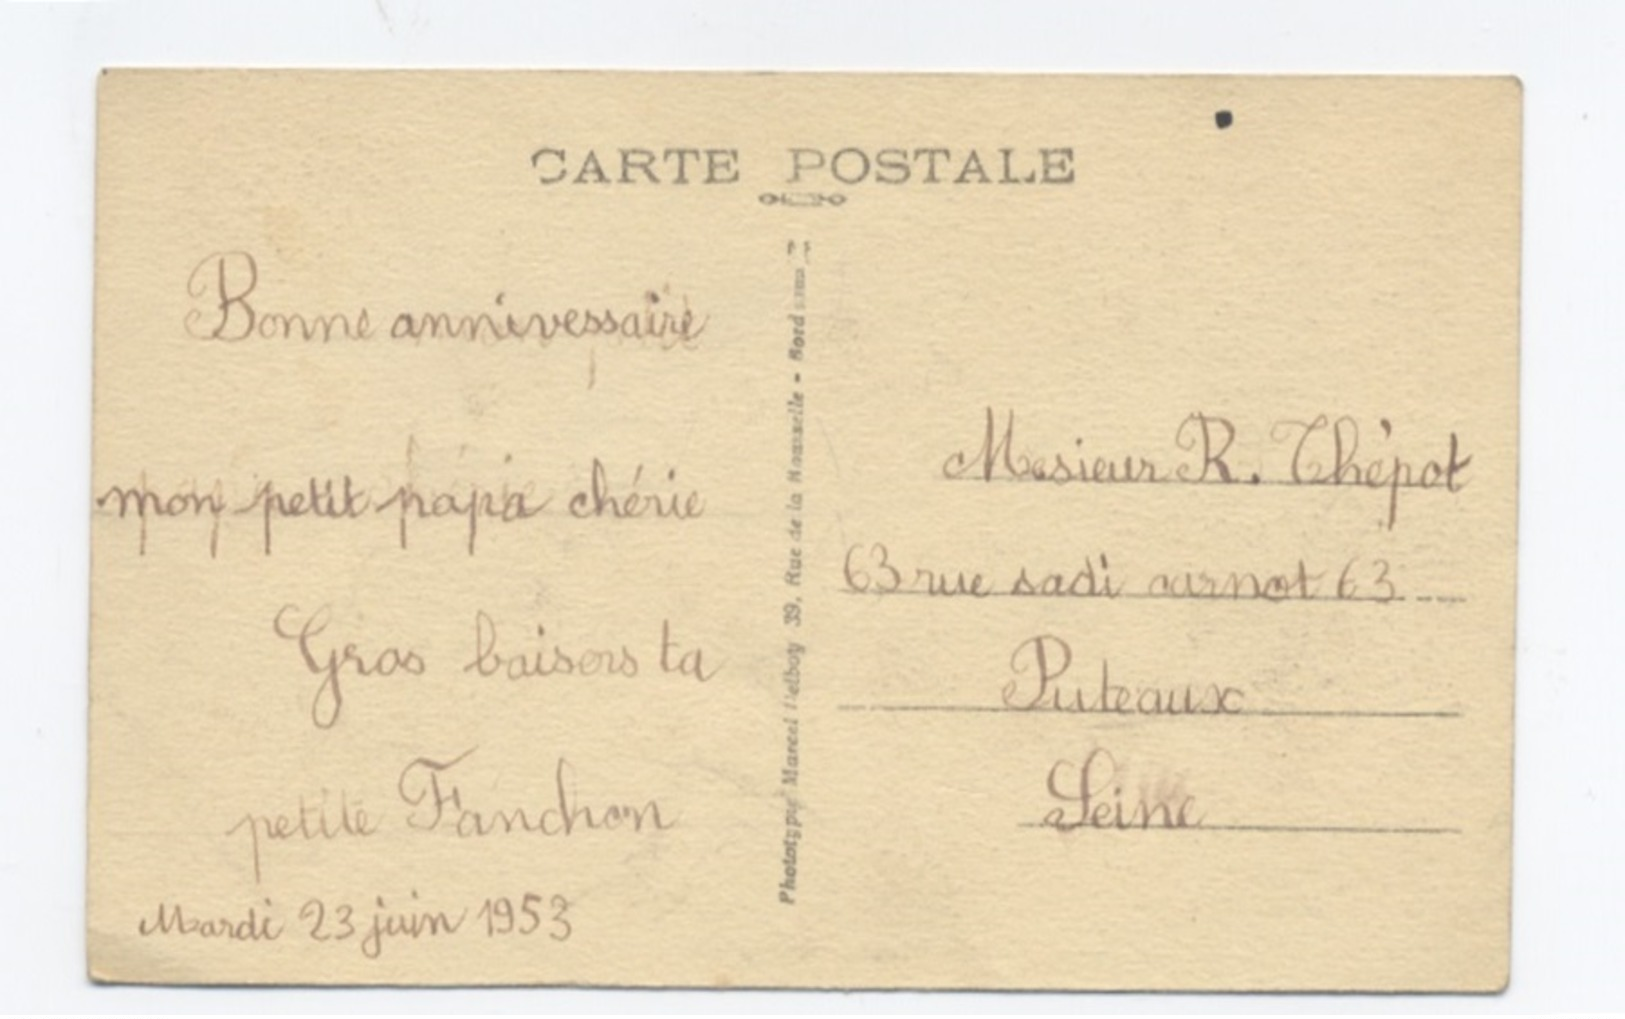 CARTE POSTALE
Bonne annivessaire
mon petit papa chérie
Gros baisers ta
petite Fanchon
Mardi 23 juin 1953
Phototypie Marcel Delboy 39, Rue de la Rousselle - Bordeaux
Mesieur R. Thépot
63 rue sadi carnot 63
Puteaux
Seine